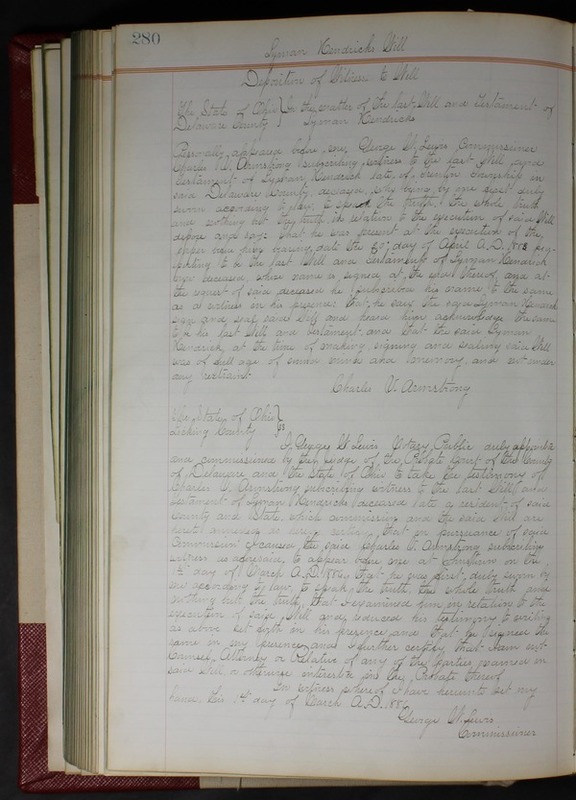 280
Lyman Kendricks Will
Deposition of Witness to Will
The State of Ohio } In the matter of the last Will and Testament of
Delaware County } Lyman Kendricks
Personally appeared before me, George W. Lewis Commissioner
Charles V. Armstrong subscribing witness to the last Will and
Testament of Lyman Kendrick late of Trenton Township in
said Delaware County, deceased, who being by me first duly
sworn according to law, to speak the truth, the whole truth
and nothing but the truth, in relation to the execution of said Will
depose and say: that he was present at the execution of the
paper here bearing date the day of April A.D. 1883 pur-
porting to be the last Will and Testament of Lyman Kendrick
now deceased, whose name is signed at the end thereof, and at
the request of said deceased he subscribed his name to the same
as a witness in his presence that he saw the said Lyman Kendrick
sign and seal said Will and heard him acknowledge the same
to be his last Will and Testament, and that the said Lyman
Kendrick, at the time of making, signing and sealing said Will
was of full age of sound mind and memory, and not under
any restraint.
Charles V. Armstrong
The State of Ohio }
Licking County } ss
I George W Lewis Notary Public duly appointed
and commissioned by the Judge of the Probate Court of the County
of Delaware and the State of Ohio to take the testimony of
Charles V. Armstrong subscribing witness to the last Will and
Testament of Lyman Kendricks deceased late a resident of said
County and State, which commission and the said Will are
hereto annexed do hereby certify that in pursuance of said
Commission I caused the said Charles V. Armstrong subscribing
witness as aforesaid, to appear before me at on the
1st day of March A.D. 1886, that he was first duly sworn by
me according to law, to speak the truth, the whole truth and
nothing but the truth, that I examined him in relation to the
execution of said Will and reduced his testimony to writing
as above set forth in his presence and that he signed the
same in my presence and I further certify that I am not
Counsel, Attorney or Relative of any of the parties named in
said Will, or otherwise interested in the Probate thereof
In witness whereof I have hereunto set my
hand this 1st day of March A.D. 1886
George W. Lewis
Commissioner